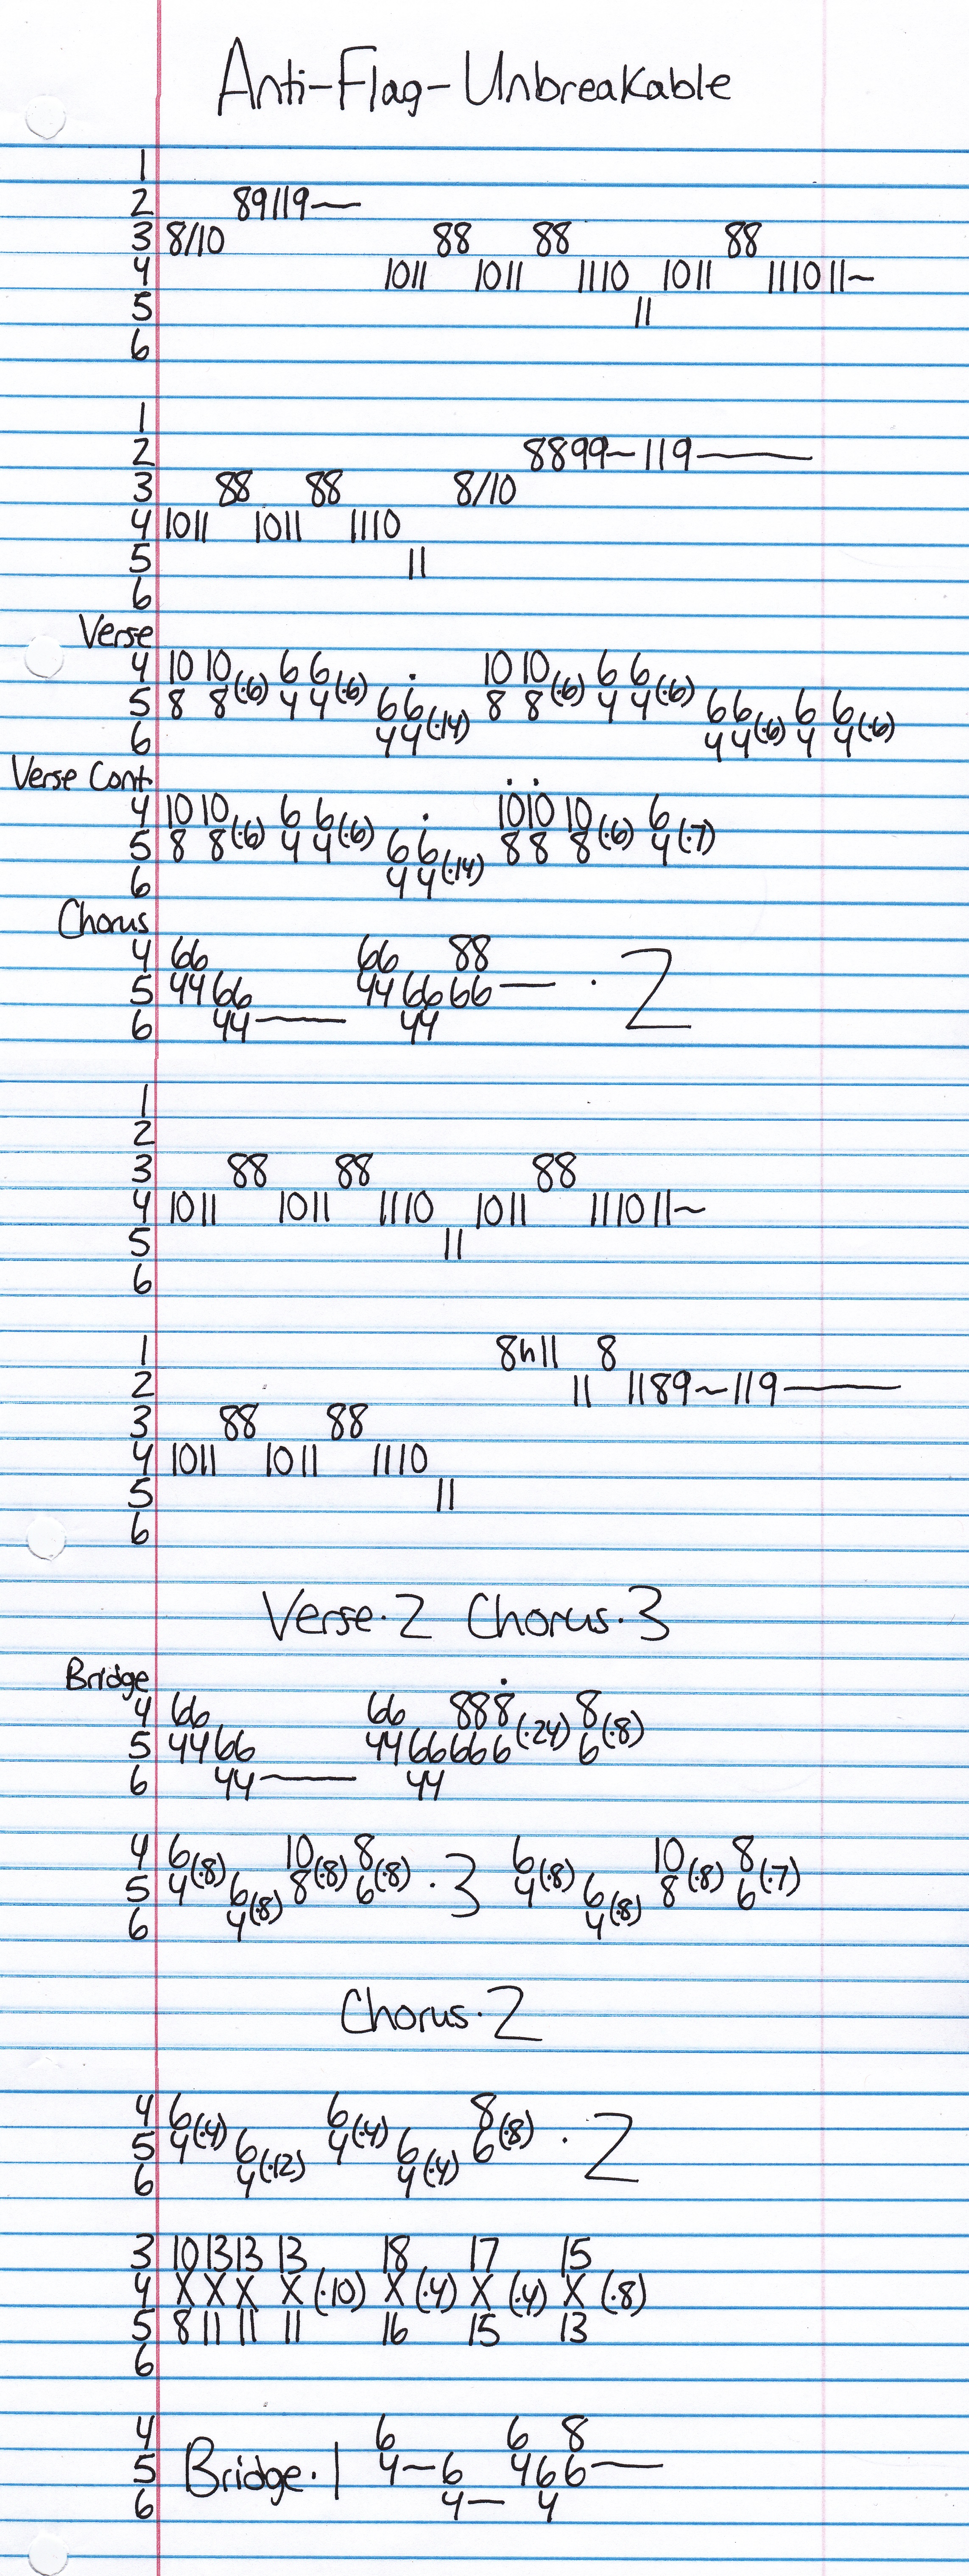 Anti-Flag-Unbreakable
1
2 89119—
3 8/10 88 88 88
4 1011 1011 1110 1011 111011~
5 11
6
1
2 8899~119—
3 88 88 8/10
4 1011 1011 1110
5 11
6
Verse
4 10 10 6 6 . 10 10 6 6
5 8 8(·6) 4 4(·6) 6 6 8 8(·6) 4 4(·6) 6 6 6 6
6 4 4(·14) 4 4(·6) 4 4(·6)
Verse Cont.
4 10 10 6 6 . 10 10 10 6
5 8 8(·6) 4 4(·6) 6 6 8 8 8(·6) 4(·7)
6 4 4(·14)
Chorus
4 66 66 88
5 44 66 44 66 66— · 2
6 44— 44
1
2
3 88 88 88
4 1011 1011 1110 1011 111011~
5 11
6
1 8h11 8
2 11 1189~119—
3 88 88
4 1011 1011 1110
5 11
6
Verse·2 Chorus·3
Bridge
4 66 66 888 8
5 44 66 44 66 666(·24) 6(·8)
6 44— 44
4 6 10 8 6 10 8
5 4(·8) 6 8(·8) 6(·8) ·3 4(·8) 6 8(·8) 6(·7)
6 4(·8) 4(·8)
Chorus·2
4 6 6 8
5 4(·4) 6 4(·4) 6 6(·8) · 2
6 4(·12) 4(·4)
3 10 13 13 13 18 17 15
4 X X X X (·10) X (·4) X (·4) X (·8)
5 8 11 11 11 16 15 13
6
4 6 6 8
5 Bridge·1 4—6 4 6 6—
6 4— 4